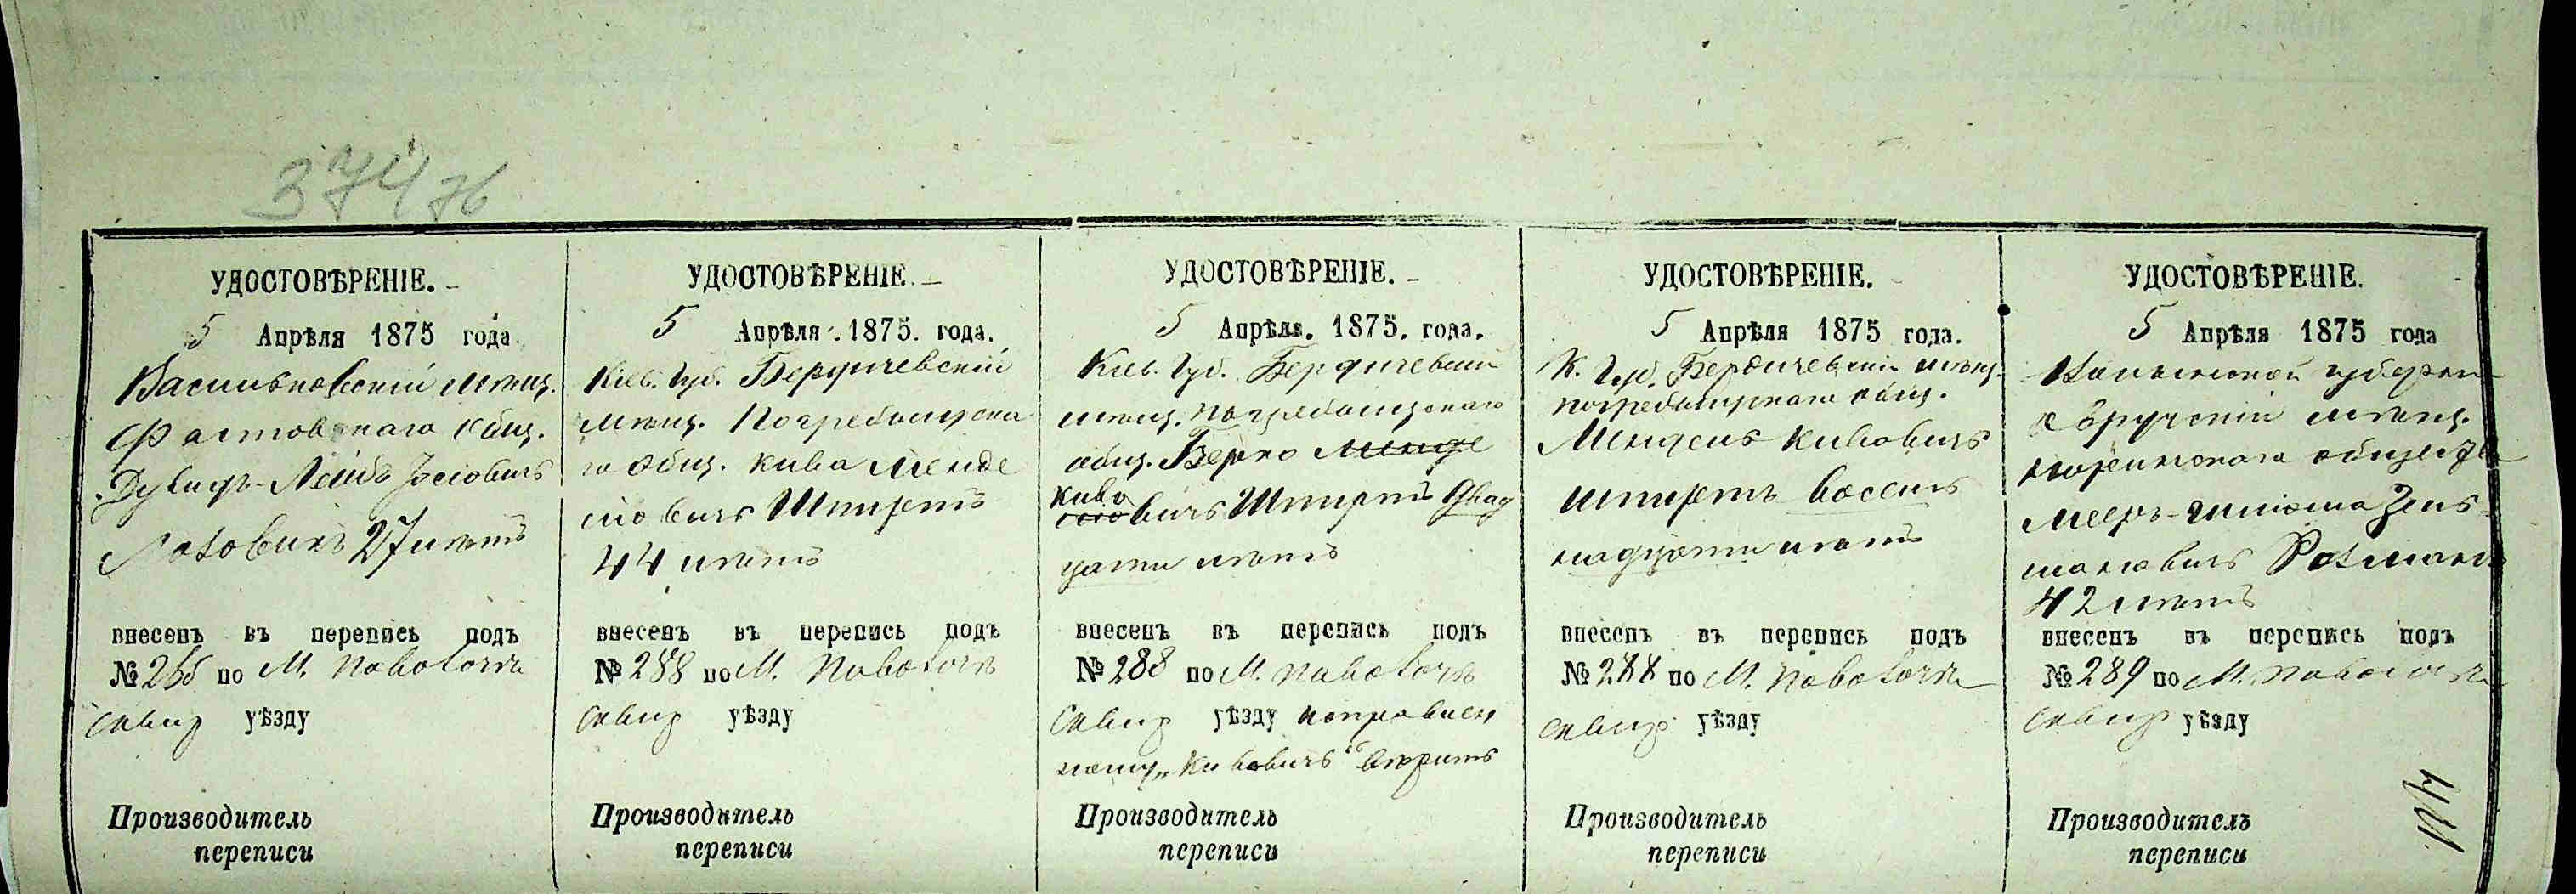 УДОСТОВѢРЕНІЕ.
5 Апрѣля 1875 года
Васильковскій мѣщ.
Фастовскаго общ.
Дувидъ-Лейбъ Іосіовичъ
27 лѣтъ
внесенъ въ перепись подъ
№ по М. Паволочи
Сквир уѣзду
Производитель
переписи
УДОСТОВѢРЕНІЕ
5 Апрѣля 1875. года.
Кіев. Губ. Бердичевскій
мѣщ. Погребищска
го общ. Кива Менде
ліовичъ Штиретъ
44 лѣтъ
внесенъ въ перепись подъ
№ 288 по М. Паволочи
Сквир уѣзду
Производитель
переписи
УДОСТОВѢРЕНІЕ.
5 Апрѣля. 1875. года.
Кіев. Губ. Бердичевскій
мѣщ. Погребищскаго
общ. Берко Менде
Киво
вичъ Штиретъ двад
цати лѣтъ
внесенъ въ перепись подъ
№ 288 по М. Паволочи
Сквир уѣзду поправлен
ному „Кивовичъ" вѣрить
Производитель
переписи
УДОСТОВѢРЕНІЕ.
5 Апрѣля 1875 года.
К. Губ. Бердичевскій мѣщ.
Погребищскаго общ.
Мендель Кивовичъ
Штиретъ восем
надцати лѣтъ
внесенъ въ перепись подъ
№ 288 по М. Паволочи
Сквир уѣзду
Производитель
переписи
УДОСТОВѢРЕНІЕ.
5 Апрѣля 1875 года
Волынской губерні
Овручскій мѣщ.
общества
Мееръ- Зель-
мановичъ
42 лѣтъ
внесенъ въ перепись подъ
№ 289 по М. Паволочи
Сквир уѣзду
Производитель
переписи